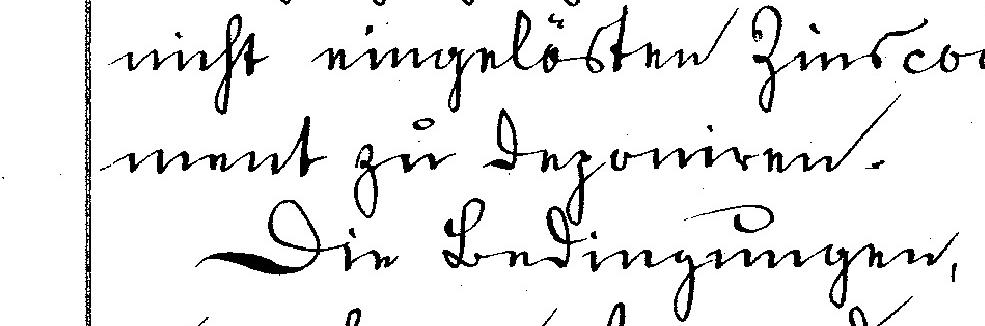 nicht eingelösten Zinscou
ment zu deponiren.
Die Bedingungen,